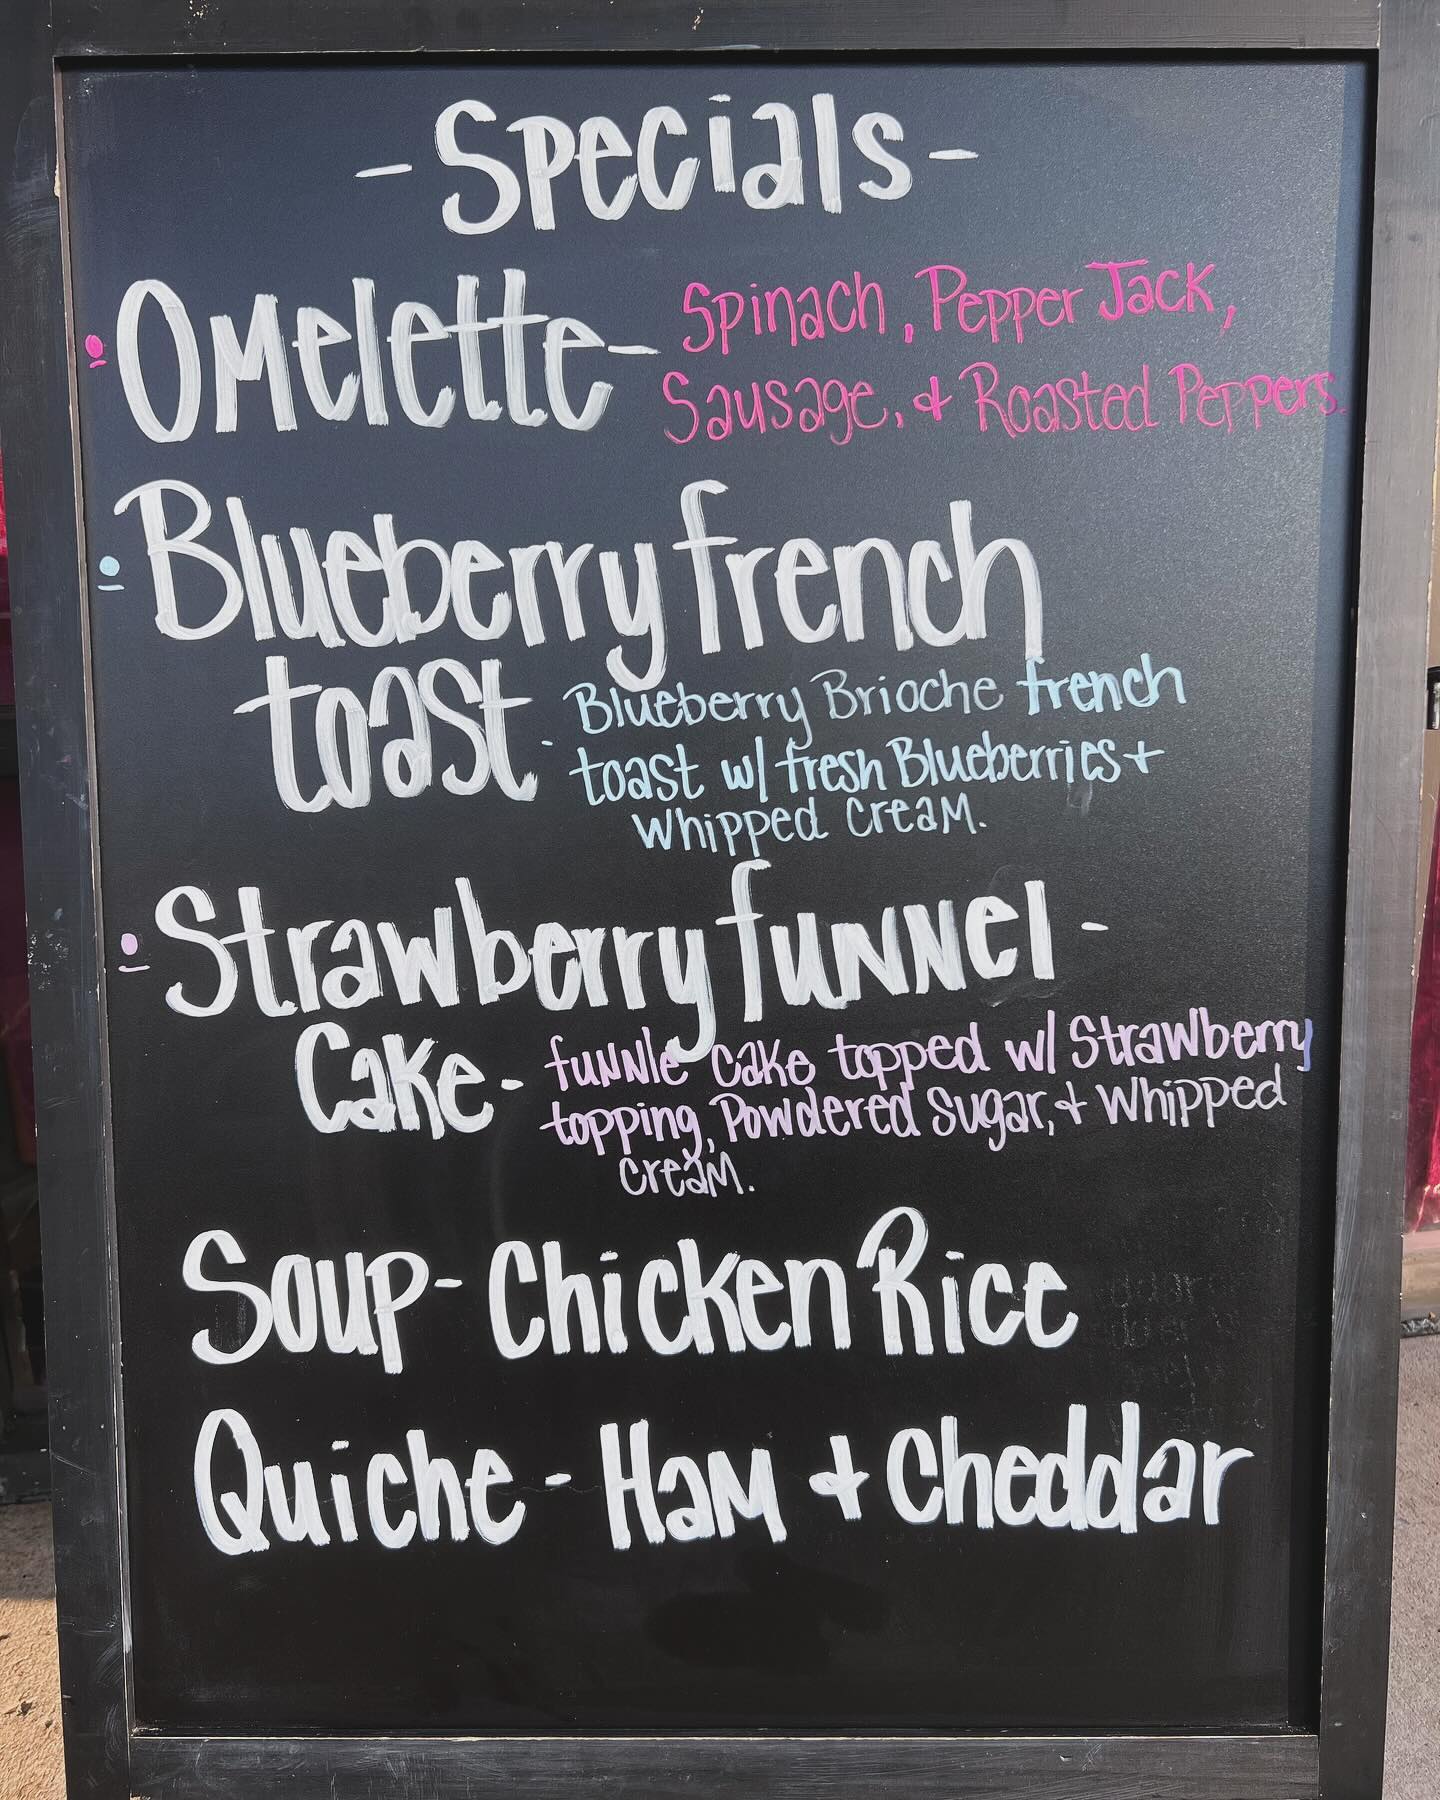 - Specials -
Omelette - Spinach, Pepper Jack,
Sausage, + Roasted Peppers.
Blueberry french
toast - Blueberry Brioche french
toast w/ fresh Blueberries +
whipped cream.
Strawberry funnel -
Cake - funnle cake topped w/ Strawberry
topping, Powdered sugar, + whipped
cream.
Soup - Chicken Rice
Quiche - Ham + Cheddar